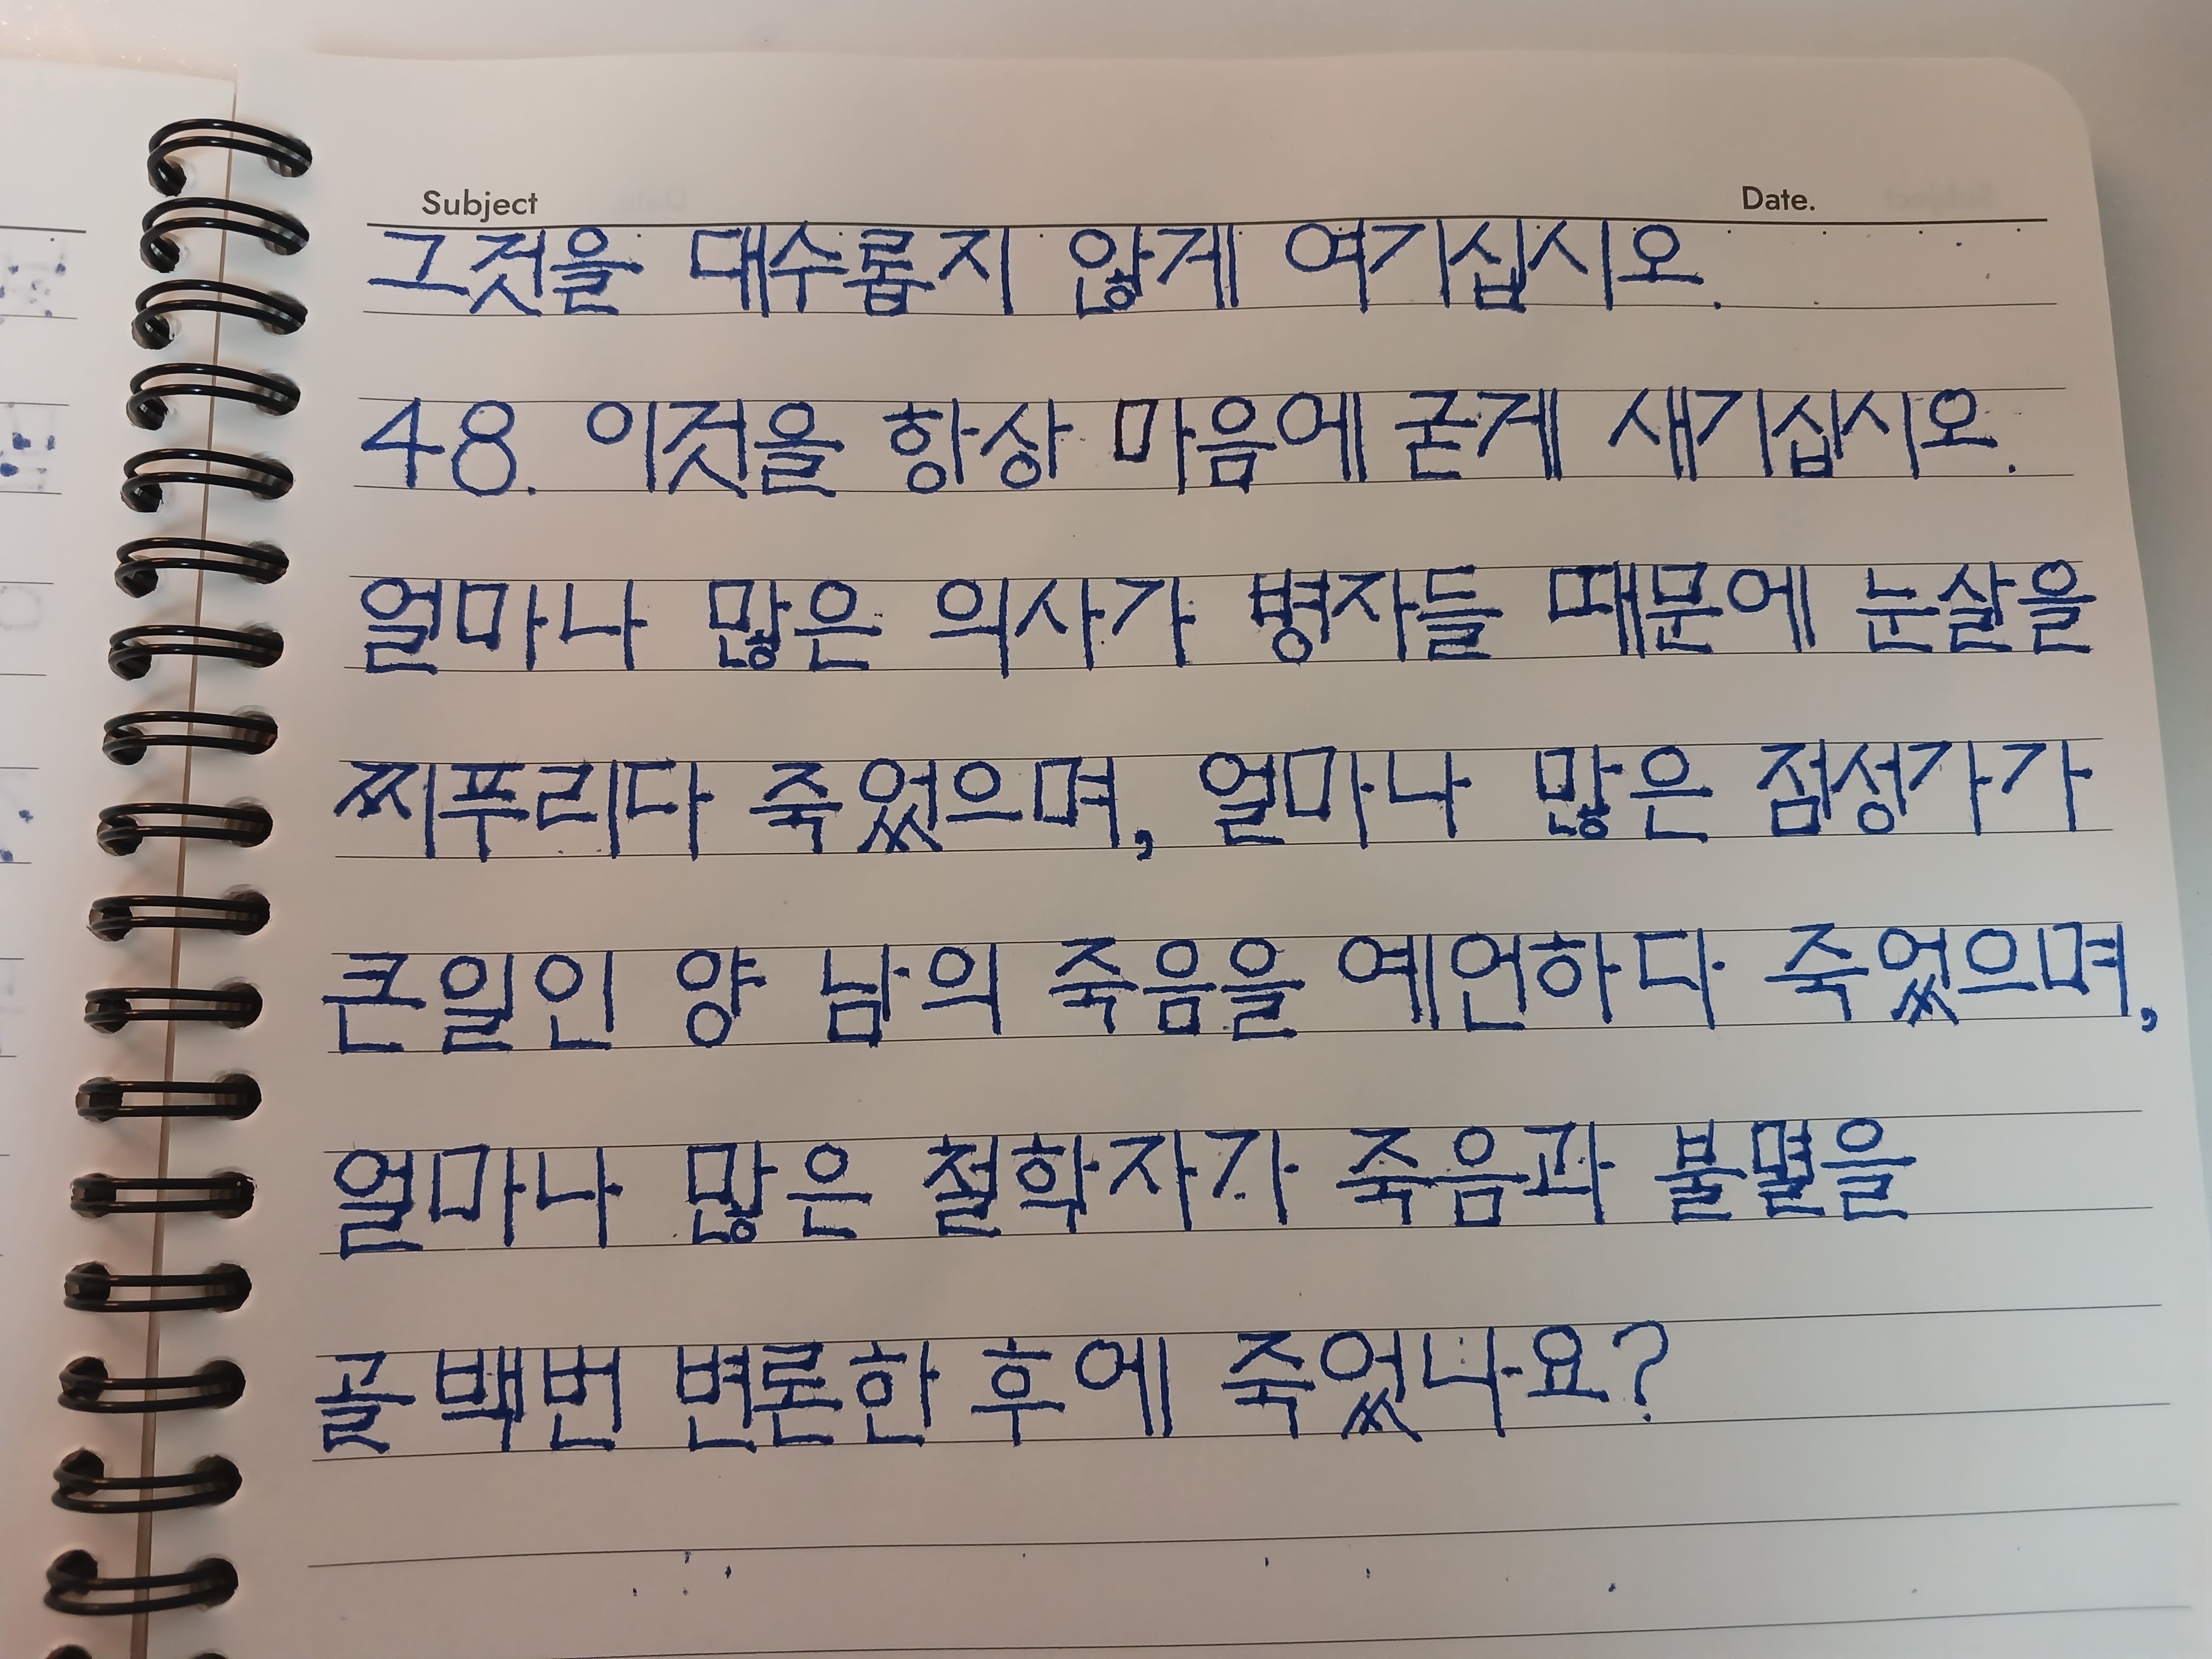 Subject Date.
그것을 대수롭지 않게 여기십시오.
48. 이것을 항상 마음에 굳게 새기십시오.
얼마나 많은 의사가 병자들 때문에 눈살을
찌푸리다 죽었으며, 얼마나 많은 점성가가
큰일인 양 남의 죽음을 예언하다 죽었으며,
얼마나 많은 철학자가 죽음과 불멸을
골백번 변론한 후에 죽었나요?